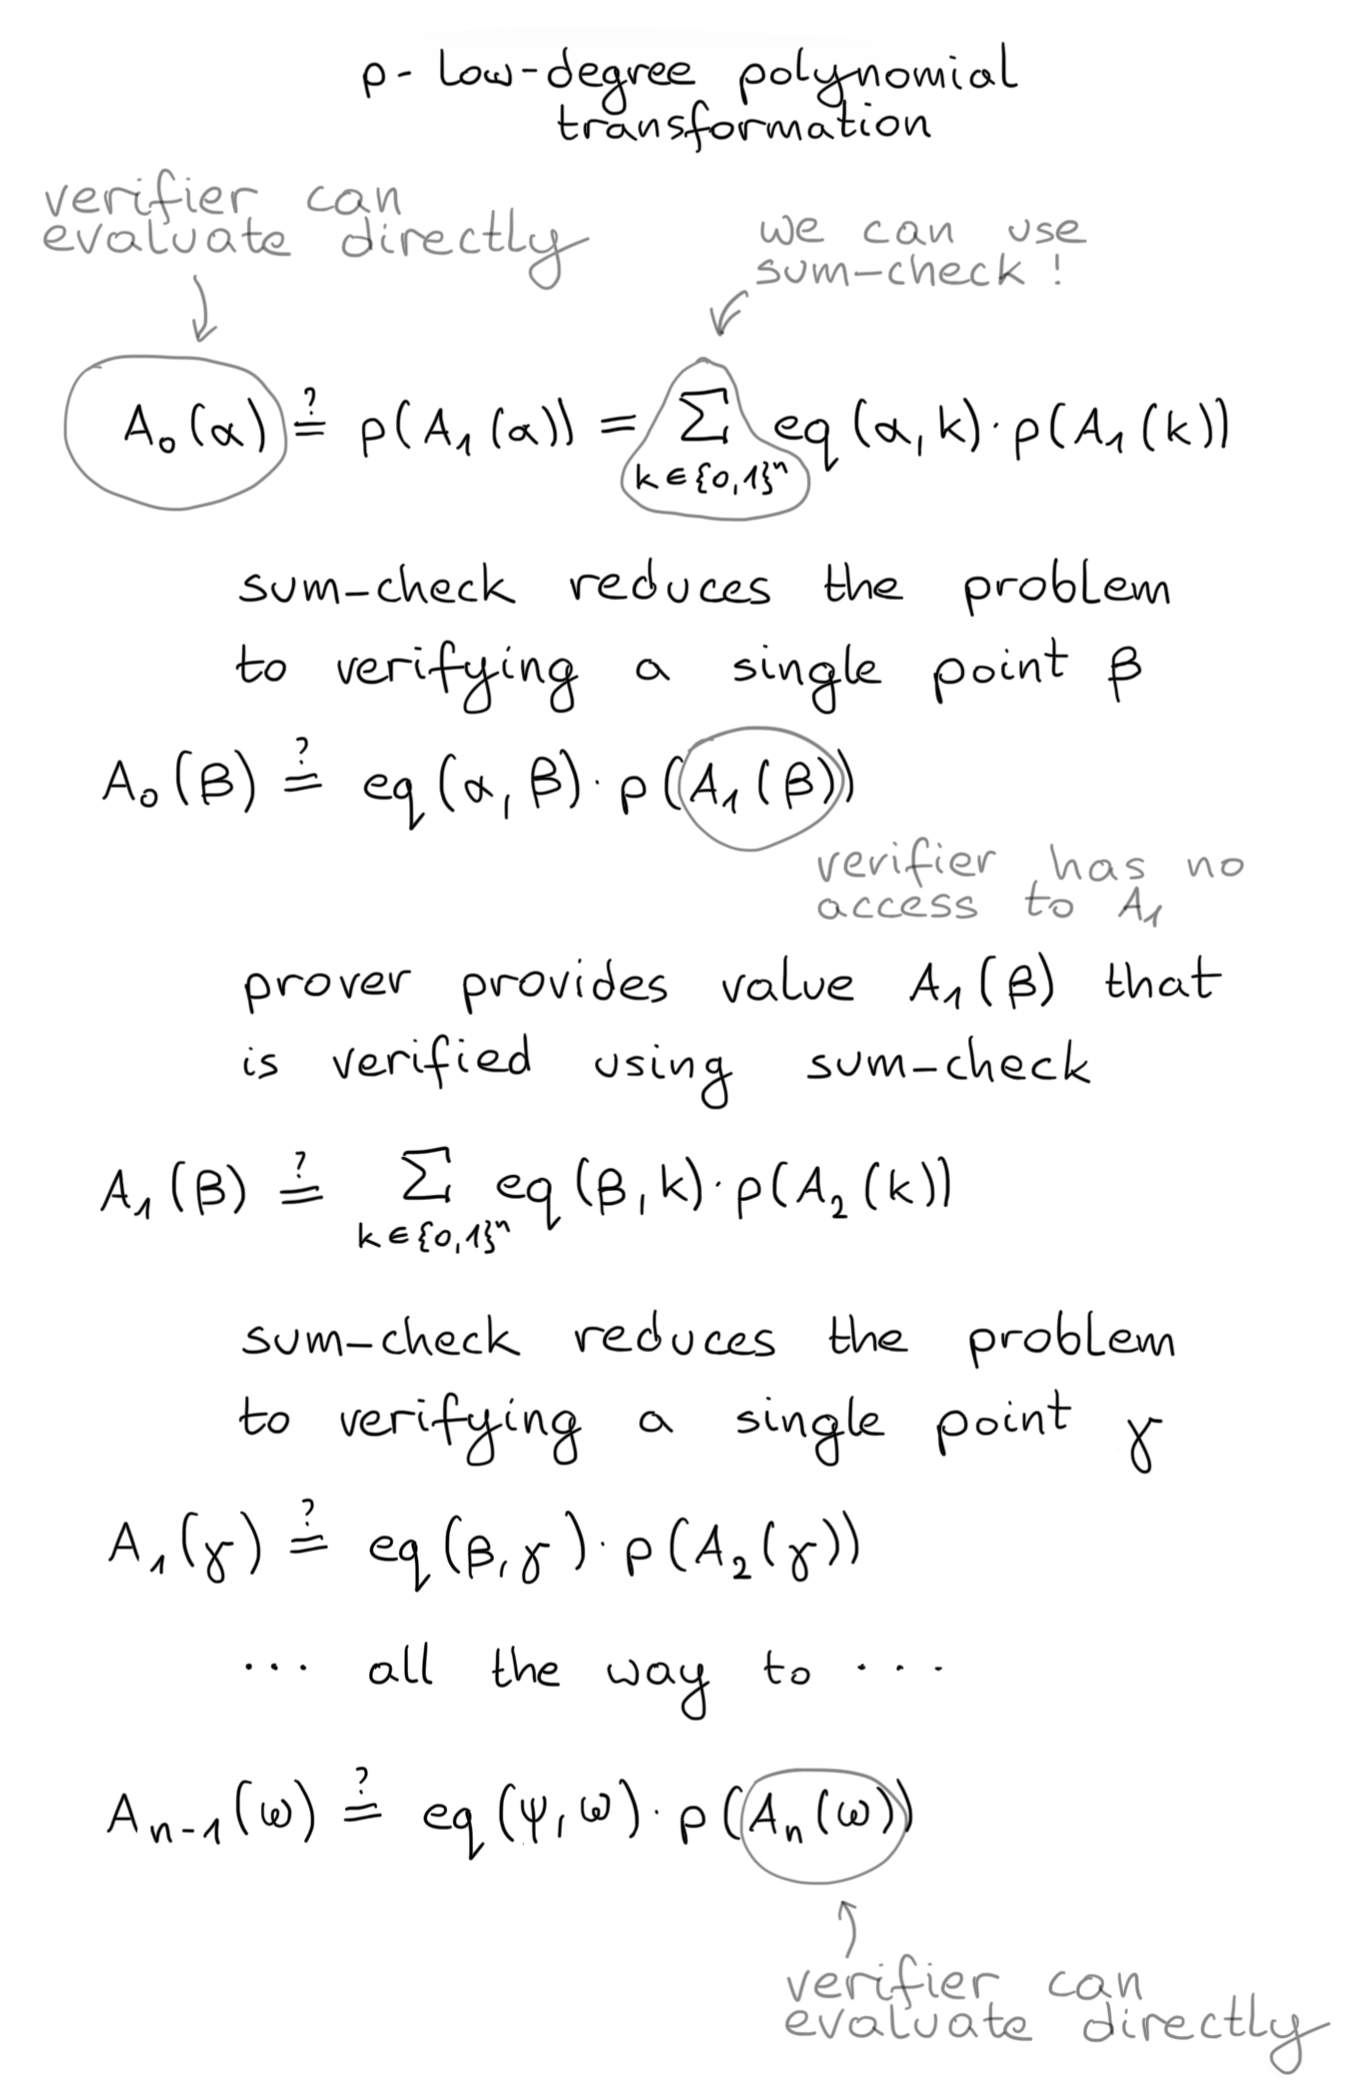 p- low-degree polynomial
transformation
verifier can
evaluate directly
we can use
sum-check!
A₀(α) ≟ p(A₁(α)) = ∑ eq(α,k)·p(A₁(k))
k∈{0,1}ⁿ
sum-check reduces the problem
to verifying a single point β
A₀(β) ≟ eq(α,β)·p(A₁(β))
verifier has no
access to A₁
prover provides value A₁(β) that
is verified using sum-check
A₁(β) ≟ ∑ eq(β,k)·p(A₂(k))
k∈{0,1}ⁿ
sum-check reduces the problem
to verifying a single point γ
A₁(γ) ≟ eq(β,γ)·p(A₂(γ))
... all the way to ...
Aₙ₋₁(ω) ≟ eq(ψ,ω)·p(Aₙ(ω))
verifier can
evaluate directly